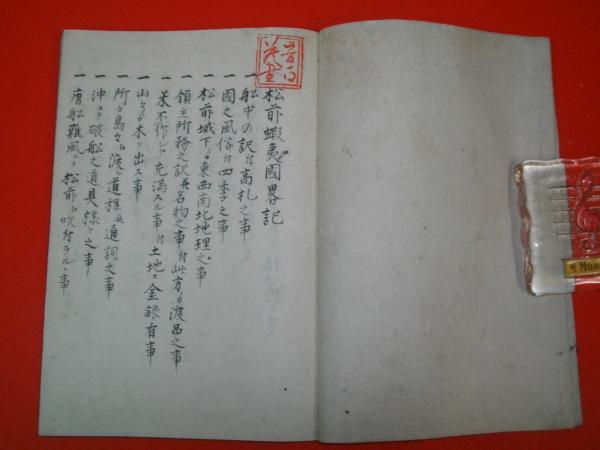 松前蝦夷國畧記
一 船中の訳付高札之事
一 國之風俗付四季之事
一 松前城下ゟ東西南北地理之事
一 領主所務之訳并名物之事付此方ゟ渡品之事
一 米不作ニシテ充満スル事付土地ニ金銀有事
一 山ゟ木ヲ出ス事
一 所々島々江渡ル道程并通詞之事
一 沖ニテ破船之道具隠ス之事
一 唐船難風ニテ松前江吹付ラルヽ事